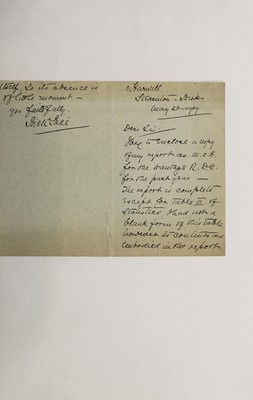 Harwell
Steventon - Berks
May 21st 1909
Dear Sir:
I beg to Enclose a copy
of my report as M.O.H.
for the Wantage R.D.C.
for the past year —
The report is complete
Except for Table II of
Statistics, I had not a
blank form of this table
however its contents are
Embodied in the report
itself, So its absence is
of little moment —
yrs faithfully.